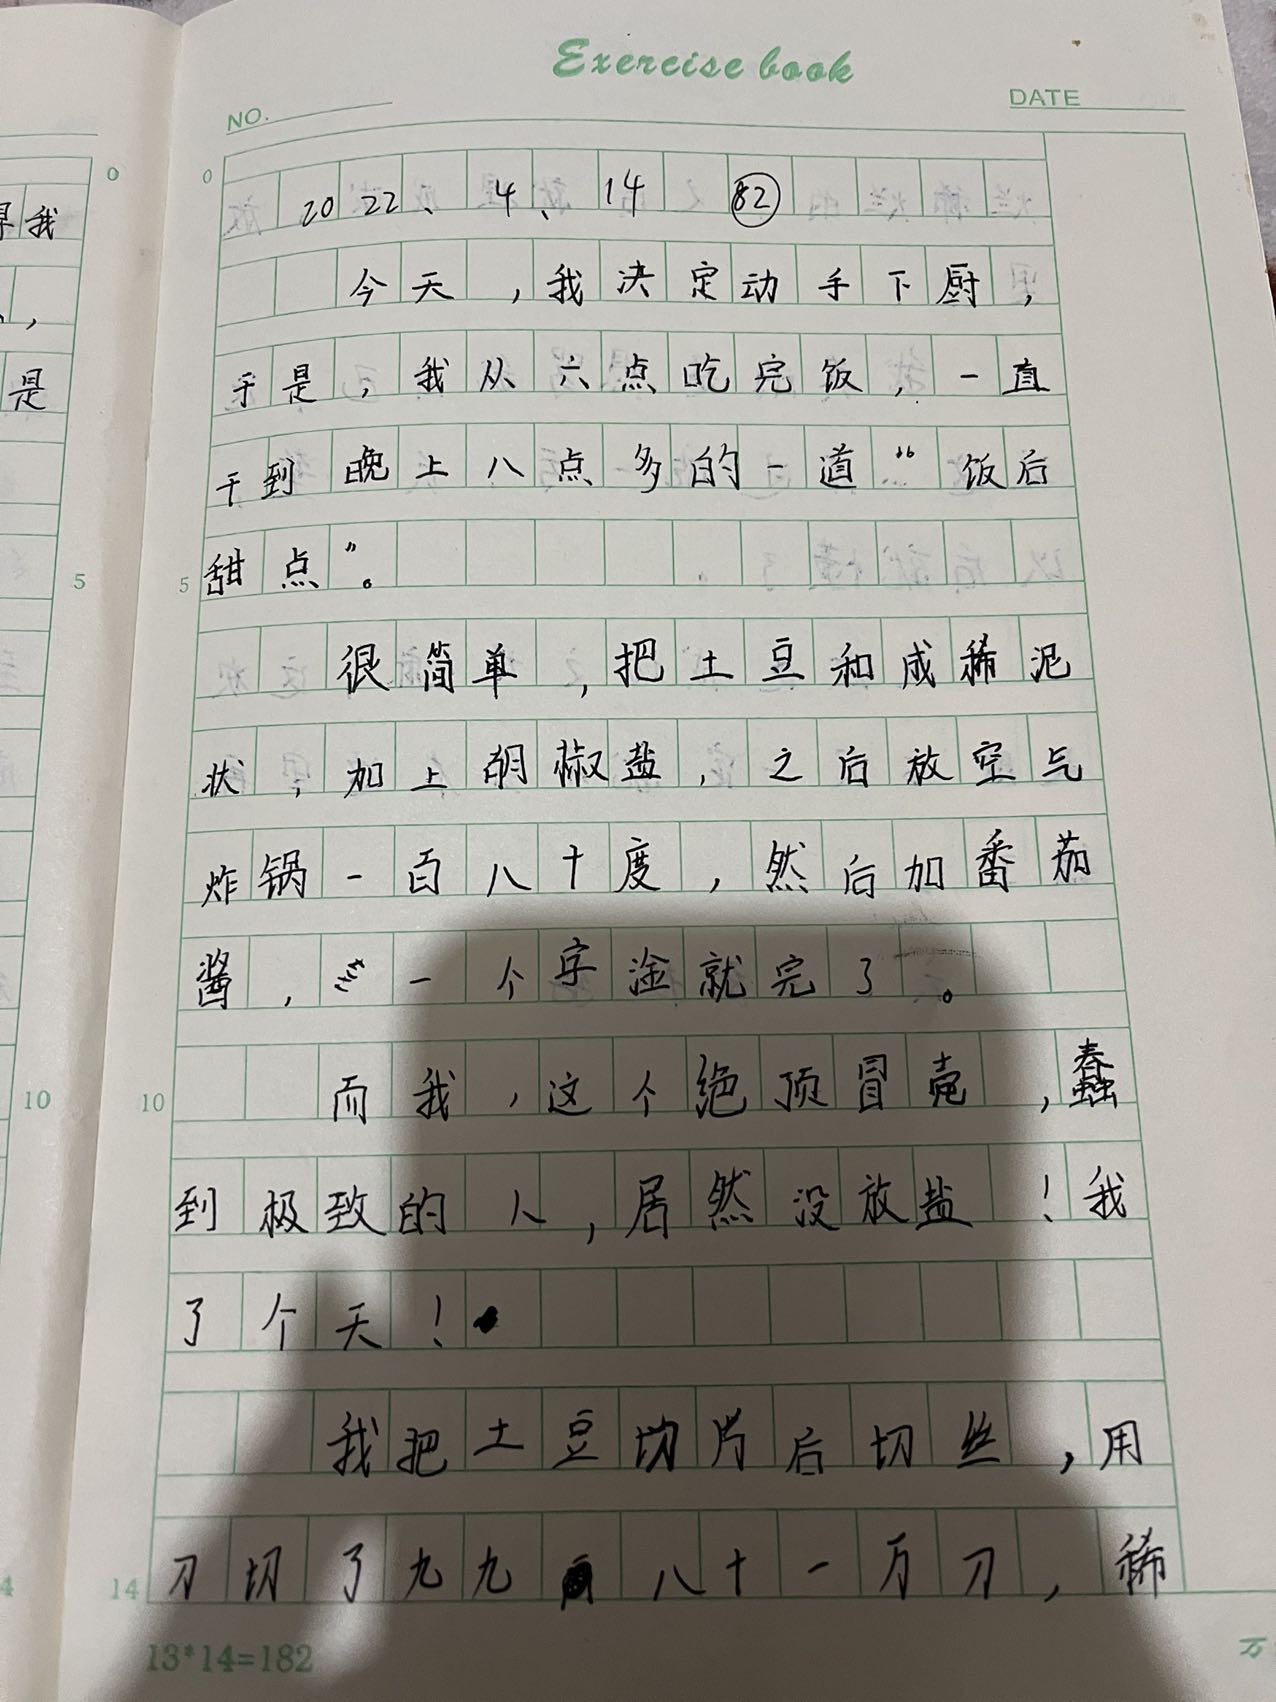 Exercise book
NO.
DATE
2022、4、14 82
今天,我决定动手下厨,
于是,我从六点吃完饭,一直
干到晚上八点多的一道“饭后
甜点”。
很简单,把土豆和成稀泥
状,加上胡椒盐,之后放空气
炸锅一百八十度,然后加番茄
酱,一个字淦就完了。
而我,这个绝顶冒壳,蠢
到极致的人,居然没放盐!我
了个天!
我把土豆切片后切丝,用
刀切了九九八十一万刀,稀
13*14=182
0
5
10
14
0
5
10
4
我
,
是
万